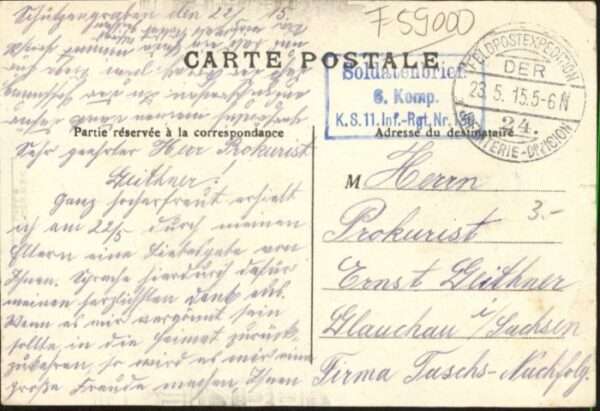 Schützengraben den 22/5 15.
F 59000
CARTE POSTALE
Soldatenbrief
6. Komp.
K.S.11.Inf.-Rgt.Nr.139.
FELDPOSTEXPEDITION
DER
23.5.15.5-6N
24.
INFANTERIE-DIVISION
Partie réservée à la correspondance
Adresse du destinataire
Sehr geehrter Herr Prokurist
Geithner!
Ganz hocherfreut erhielt
ich am 22/5 durch meinen
Eltern eine Liebesgabe von
Ihnen. Spreche hierdurch dafür
meinen herzlichsten Dank aus.
Wenn es mir vergönnt sein
sollte, in die Heimat zurück-
zukehren, so wird es mir eine
große Freude machen Ihnen
M Herrn
3.-
Prokurist
Ernst Geithner
Glauchau i/Sachsen
Firma Tasch's-Nachfolg.